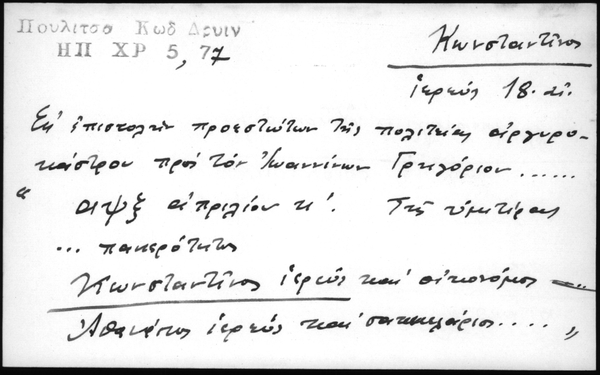 Πουλιτσα Κωδ Δευιν
ΗΠ ΧΡ 5, 77
Κωνσταντῖνος
ἱερεύς 18. αἰ.
Ἐν ἐπιστολῇ προεστώτων τῆς πολιτείας ἀργυρο-
κάστρου πρός τόν Ἰωαννίνων Γρηγόριον ......
" αιψξ ἀπριλίου κ'. Τῆς ὑμετέρας
... πανιερότητος
Κωνσταντῖνος ἱερεύς καί οἰκονόμος —
Ἀθανάσιος ἱερεύς καί σακκελάριος .... "